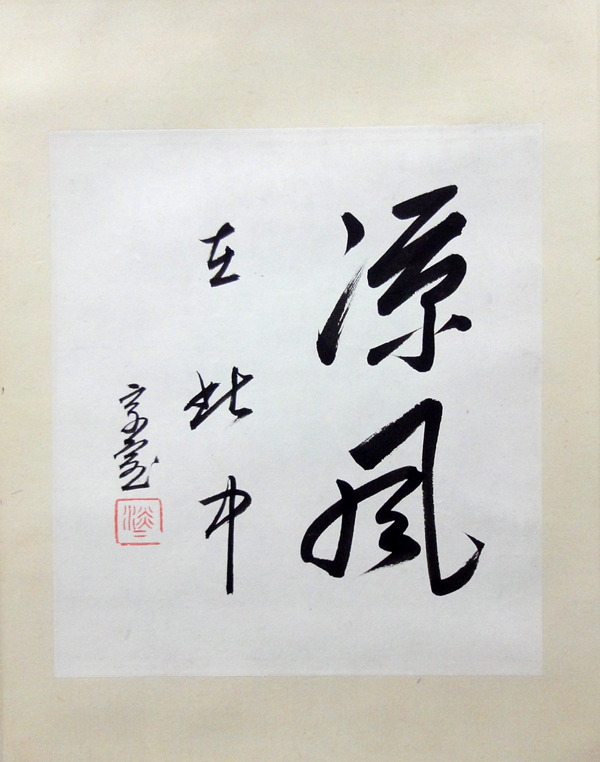 涼風
在此中